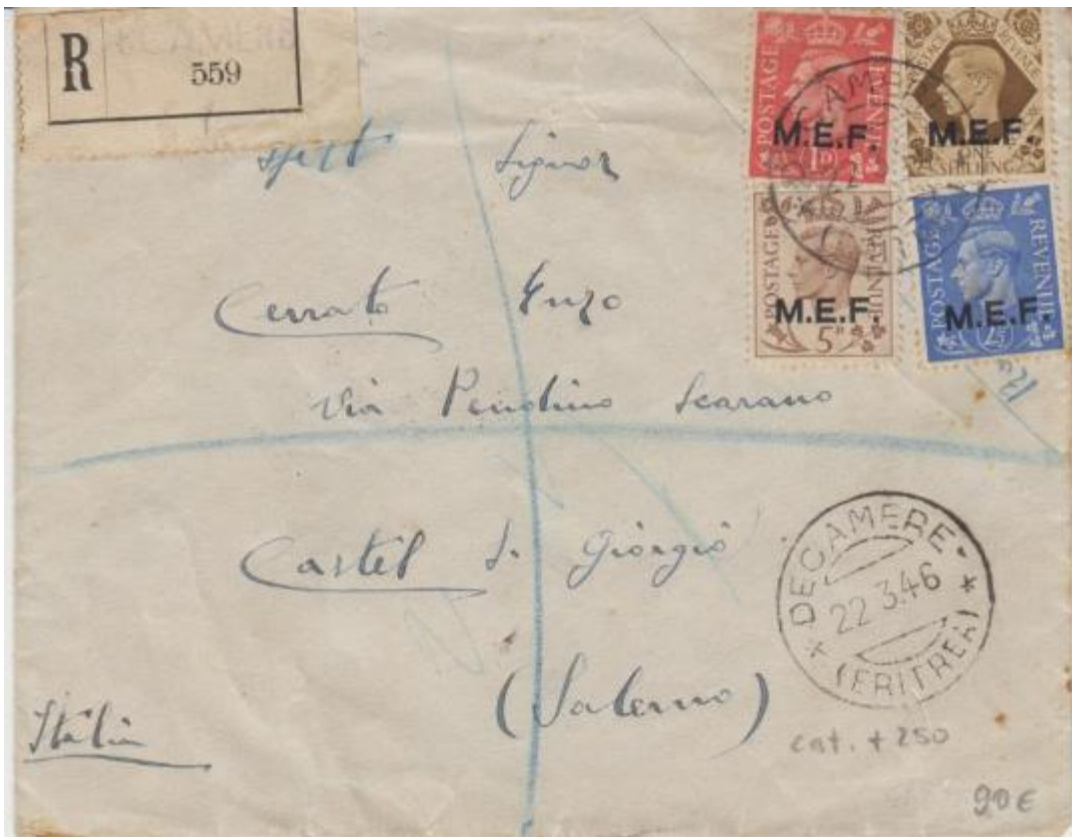 R
DECAMERE
559
POSTAGE REVENUE
M.E.F.
1D
POSTAGE REVENUE
M.E.F.
ONE SHILLING
POSTAGE REVENUE
M.E.F.
5D
POSTAGE REVENUE
M.E.F.
2½D
Signor
Cerrato Enzo
Via Pendino Scarano
Castel S. Giorgio
(Salerno)
Italia
DECAMERE
22.3.46
(ERITREA)
cat. + 250
90€